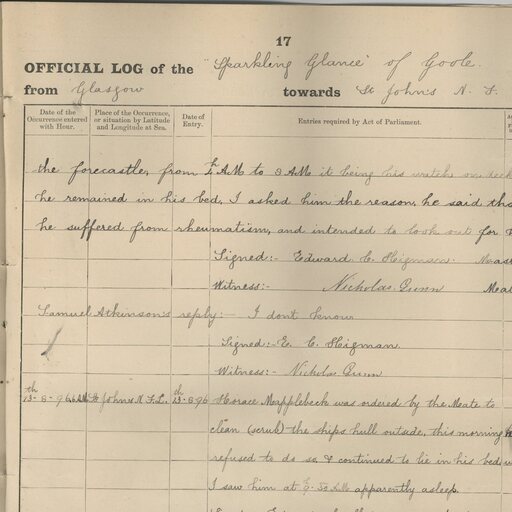 17
OFFICIAL LOG of the "Sparkling Glance" of Goole
from Glasgow towards St John's N. F.
Date of the Occurrence entered with Hour.
Place of the Occurrence, or situation by Latitude and Longitude at Sea.
Date of Entry.
Entries required by Act of Parliament.
the forecastle, from 4 AM to 8 AM it being his watch on deck
he remained in his bed, I asked him the reason, he said tha
he suffered from rheumatism, and intended to look out for
Signed:- Edward C. Higman. Mast
Witness:- Nicholas Gunn Mat
Samuel Atkinson's reply:- I dont know
Signed:- E. C. Higman
Witness:- Nicholas Gunn
13th-8-96 St Johns N.F.L. 13th-8-96 Horace Mapplebeck was ordered by the Mate to
clean (scrub) the ships hull outside, this morning
refused to do so, & continued to lie in his bed,
I saw him at 6-30 AM apparently asleep.